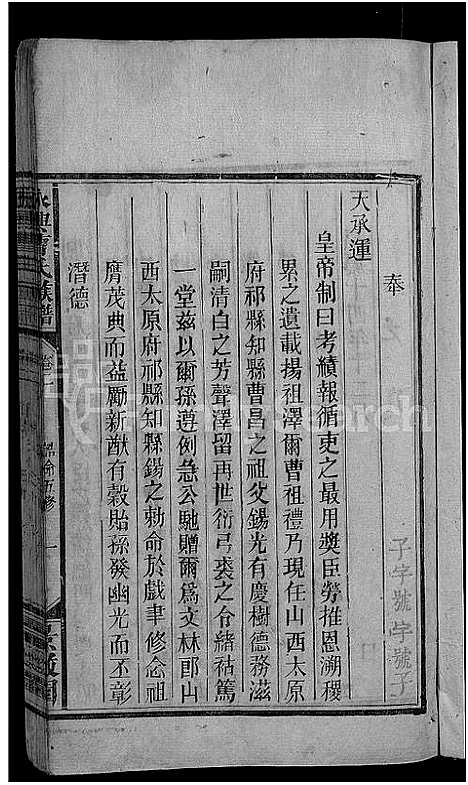 奉
天承運
皇帝制曰考績報循吏之最用奬臣勞推恩溯積
累之遺載揚祖澤爾曹祖禮乃現任山西太原
府祁縣知縣曹昌之祖父錫光有慶樹德務滋
嗣清白之芳聲澤留再世衍弓裘之令緒祜篤
一堂茲以爾孫遵例急公馳贈爾爲文林郎山
西太原府祁縣知縣錫之勅命於戲聿修念祖
膺茂典而益勵新猷有穀貽孫發幽光而丕彰
潛德
氏族譜
卷一
誥命五修
一
子字號字號子